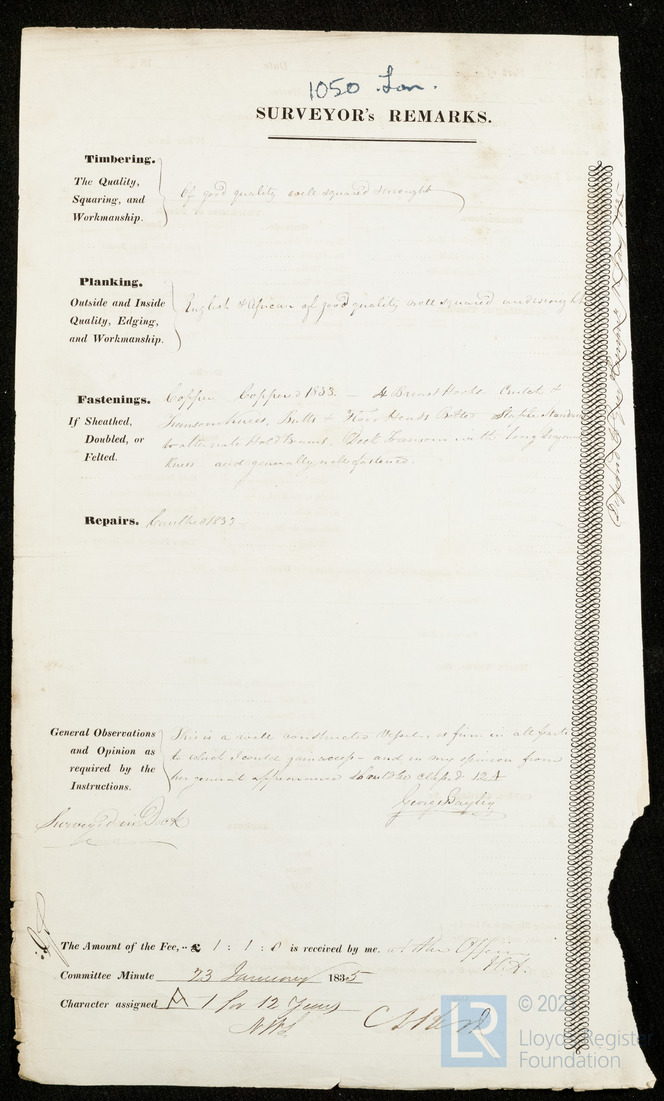 1050 Lon.
SURVEYOR's REMARKS.
Timbering.
The Quality,
Squaring, and
Workmanship.
Of good quality well squared & wrought
Planking.
Outside and Inside
Quality, Edging,
and Workmanship.
English & African of good quality well squared and wrought
Fastenings.
If Sheathed,
Doubled, or
Felted.
Copper Coppered 1833. — 4 Breast Hooks Crutch &
Transom Knees, Butts & Floor Heads Bolted
to alternate Hold Beams, Deck Transom with long
Knees and generally well fastened.
Repairs. Caulked 1833
General Observations
and Opinion as
required by the
Instructions.
This is a well constructed Vessel, is firm in all parts
to which I could gain access — and in my opinion from
her general appearance should be class'd 12 A
George Bayley
Surveyed in Dock
The Amount of the Fee, £ 1 : 1 : 0 is received by me. at the Office
Committee Minute 23 January 1835
Character assigned A 1 for 12 Years
LR
Lloyd's Register
Foundation